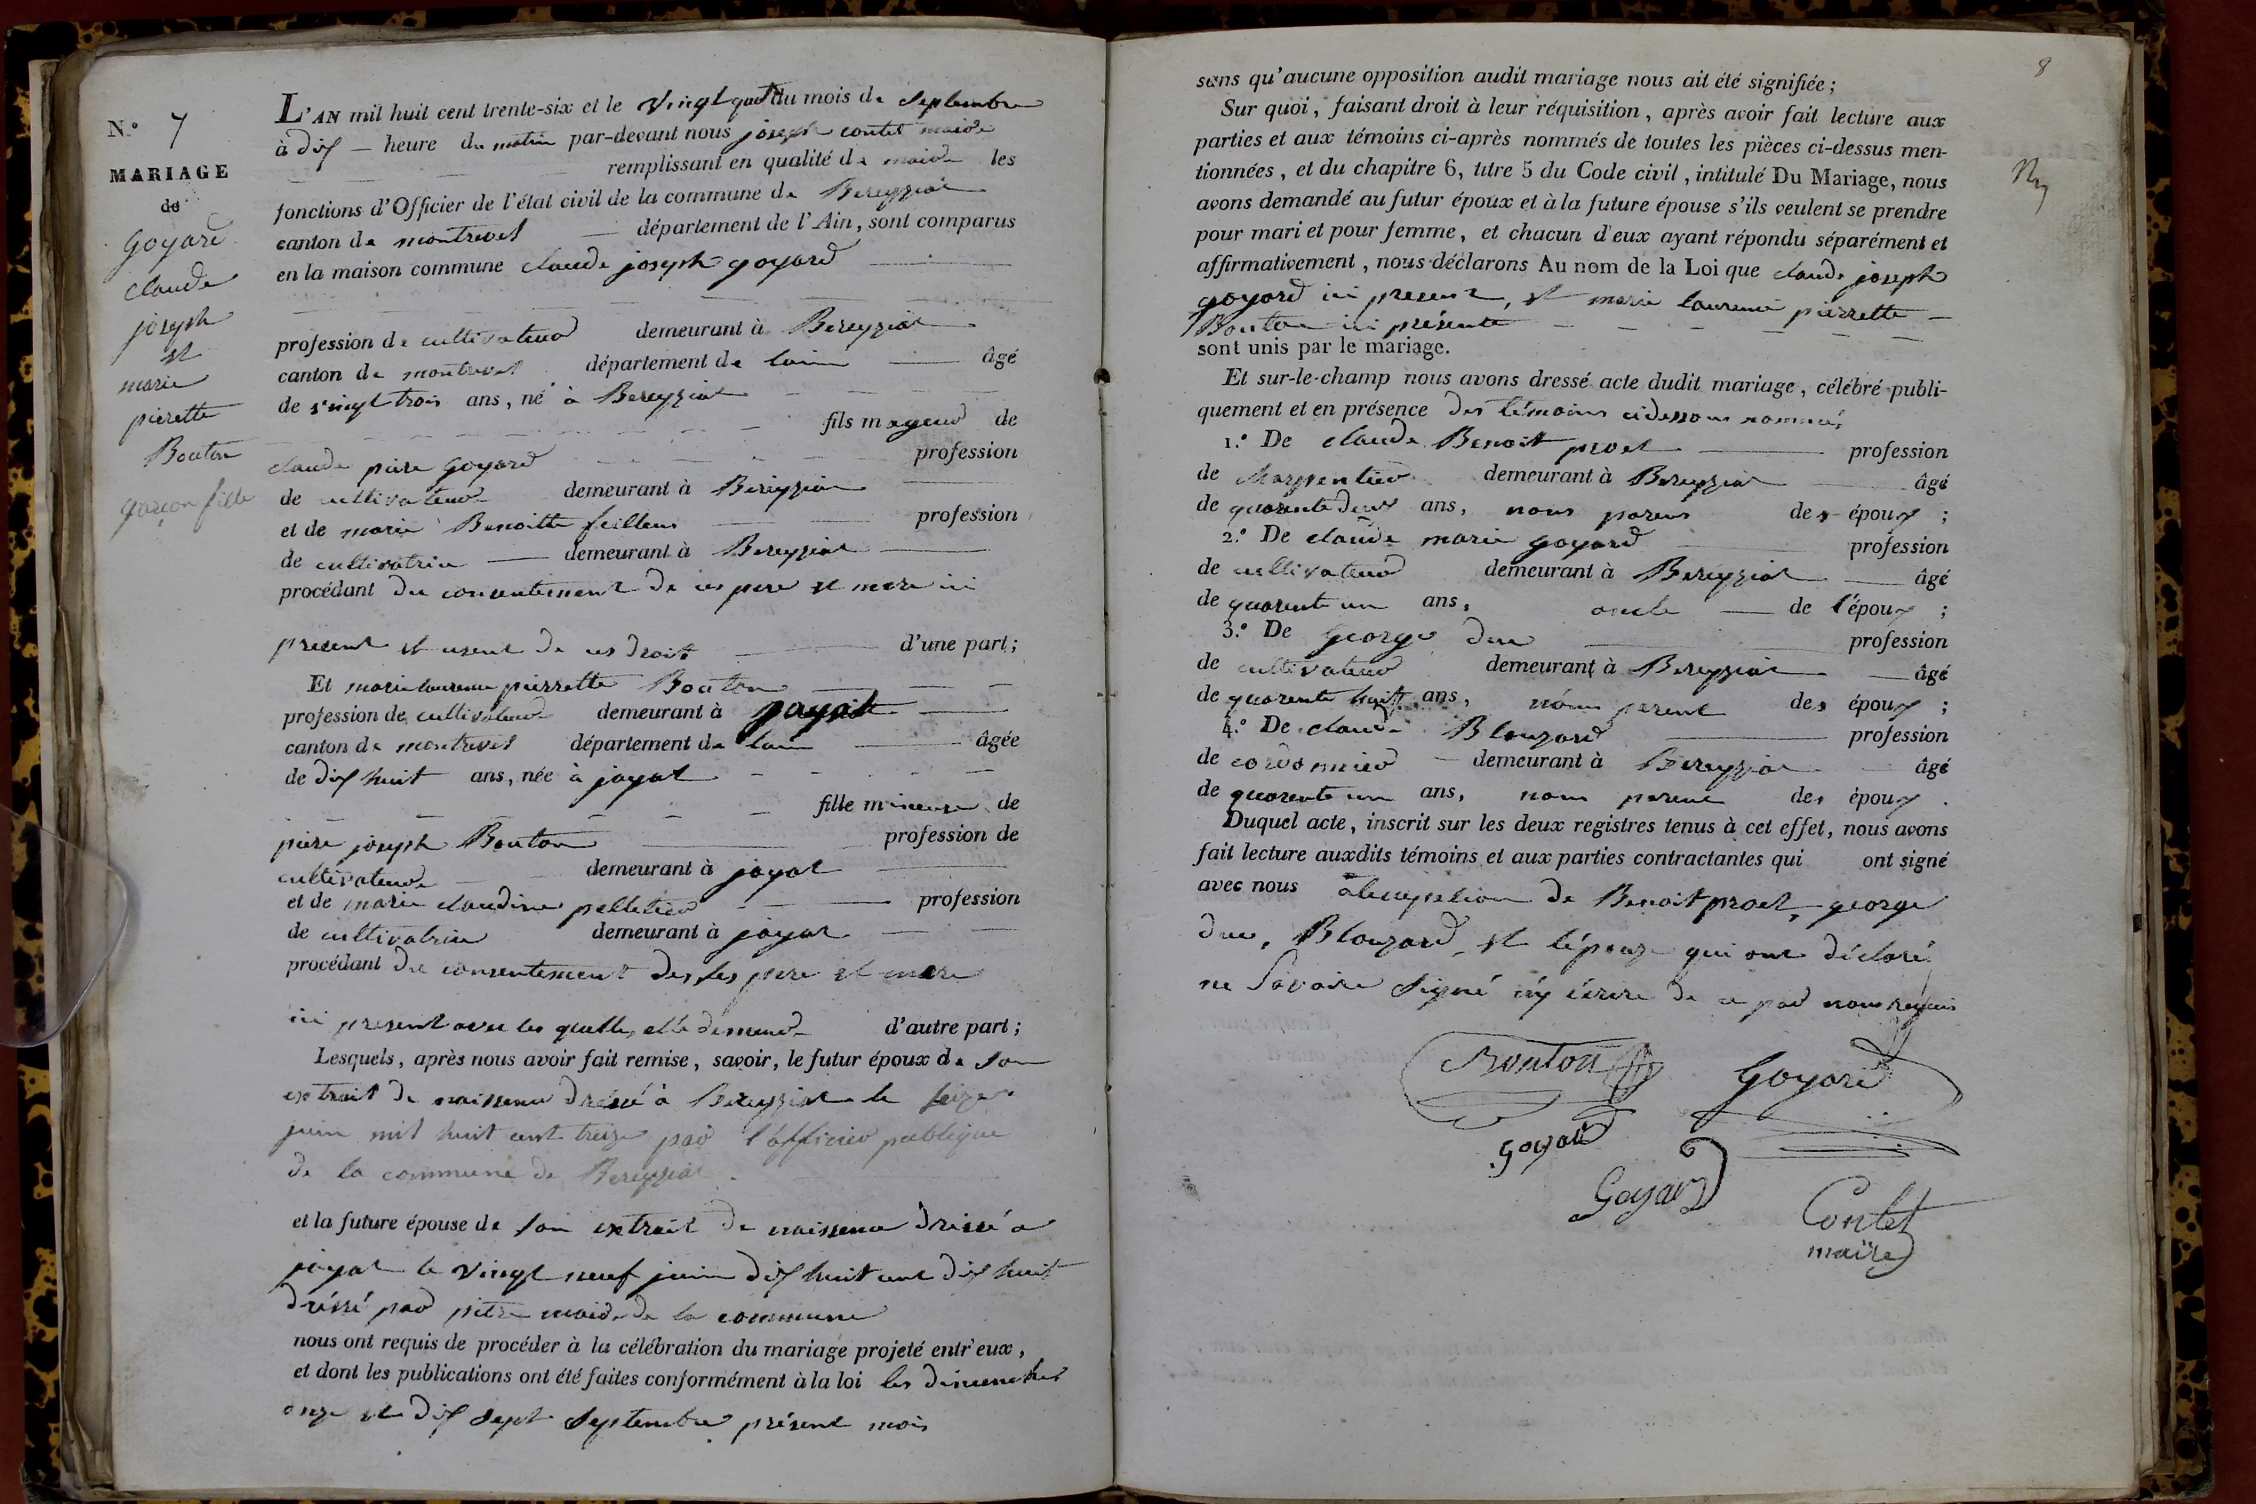 N.º 7
MARIAGE
de
Goyard
claude
joseph
et
marie
pierette
Bouton
garçon fille
L'AN mil huit cent trente-six et le vingt quat du mois de septembre
à dix — heure du matin par-devant nous joseph contet maire
remplissant en qualité de maire les
fonctions d'Officier de l'état civil de la commune de Bereyziat
canton de montrevel — département de l'Ain, sont comparus
en la maison commune claude joseph goyard
profession de cultivateur demeurant à Bereyziat
canton de montrevel département de lain — âgé
de vingt trois ans, né à Bereyziat
fils mageur de
claude piere Goyard profession
de cultivateur demeurant à Bereyziat
et de marie Benoitte feillens profession
de cultivatrice — demeurant à Bereyziat
procédant du consentement de ces pere et mere ici
present et usent de ces droits d'une part;
Et marie laurence pierrette Bouton
profession de cultivateur demeurant à jayat
canton de montrevel département de lain — âgée
de dix huit ans, née à jayat
fille mineure de
piere joseph Bouton profession de
cultivateur demeurant à jayat
et de marie claudine pelletier — profession
de cultivatrice demeurant à jayat
procédant du consentement de ses pere et mere
ici present avec les quelles elle demeure d'autre part;
Lesquels, après nous avoir fait remise, savoir, le futur époux de son
extrait de naissence dressé à Bereyziat le seize
juin mil huit cent treize par l'officier publique
de la commune de Bereyziat.
et la future épouse de son extrait de naissence dressé a
jayat le vingt neuf juin dix huit cent dix huit
dréssé par pitre maire de la commune
nous ont requis de procéder à la célébration du mariage projeté entr'eux,
et dont les publications ont été faites conformément à la loi les dimenches
onze et dix sept septembre présent mois
8
sans qu'aucune opposition audit mariage nous ait été signifiée;
Sur quoi, faisant droit à leur réquisition, après avoir fait lecture aux
parties et aux témoins ci-après nommés de toutes les pièces ci-dessus men-
tionnées, et du chapitre 6, titre 5 du Code civil, intitulé Du Mariage, nous
avons demandé au futur époux et à la future épouse s'ils veulent se prendre
pour mari et pour femme, et chacun d'eux ayant répondu séparément et
affirmativement, nous déclarons Au nom de la Loi que claude joseph
goyard ici present, et marie laurence pierrette
Bouton ici présente
sont unis par le mariage.
Et sur-le-champ nous avons dressé acte dudit mariage, célébré publi-
quement et en présence des témoins cidessous nommés
1.º De claude Benoit proet — profession
de charpentier demeurant à Bereyziat — âgé
de quarente deux ans, nons parens des époux;
2.º De claude marie goyard profession
de cultivateur demeurant à Bereyziat — âgé
de quarente un ans, oncle — de l'époux;
3.º De George duc profession
de cultivateur demeurant à Bereyziat — âgé
de quarente huit ans, nons parent des époux;
4.º De claude Blouzard — profession
de cordonnier — demeurant à Bereyziat âgé
de quarente un ans, nons parent des époux.
Duquel acte, inscrit sur les deux registres tenus à cet effet, nous avons
fait lecture auxdits témoins et aux parties contractantes qui ont signé
avec nous alexception de Benoit proet, george
duc, Blouzard, et lépouze qui ont déclaré
ne savoire signé n'y écrire de ce par nous requis
Bouton Goyard
Goyard
Goyard
Contet
maire